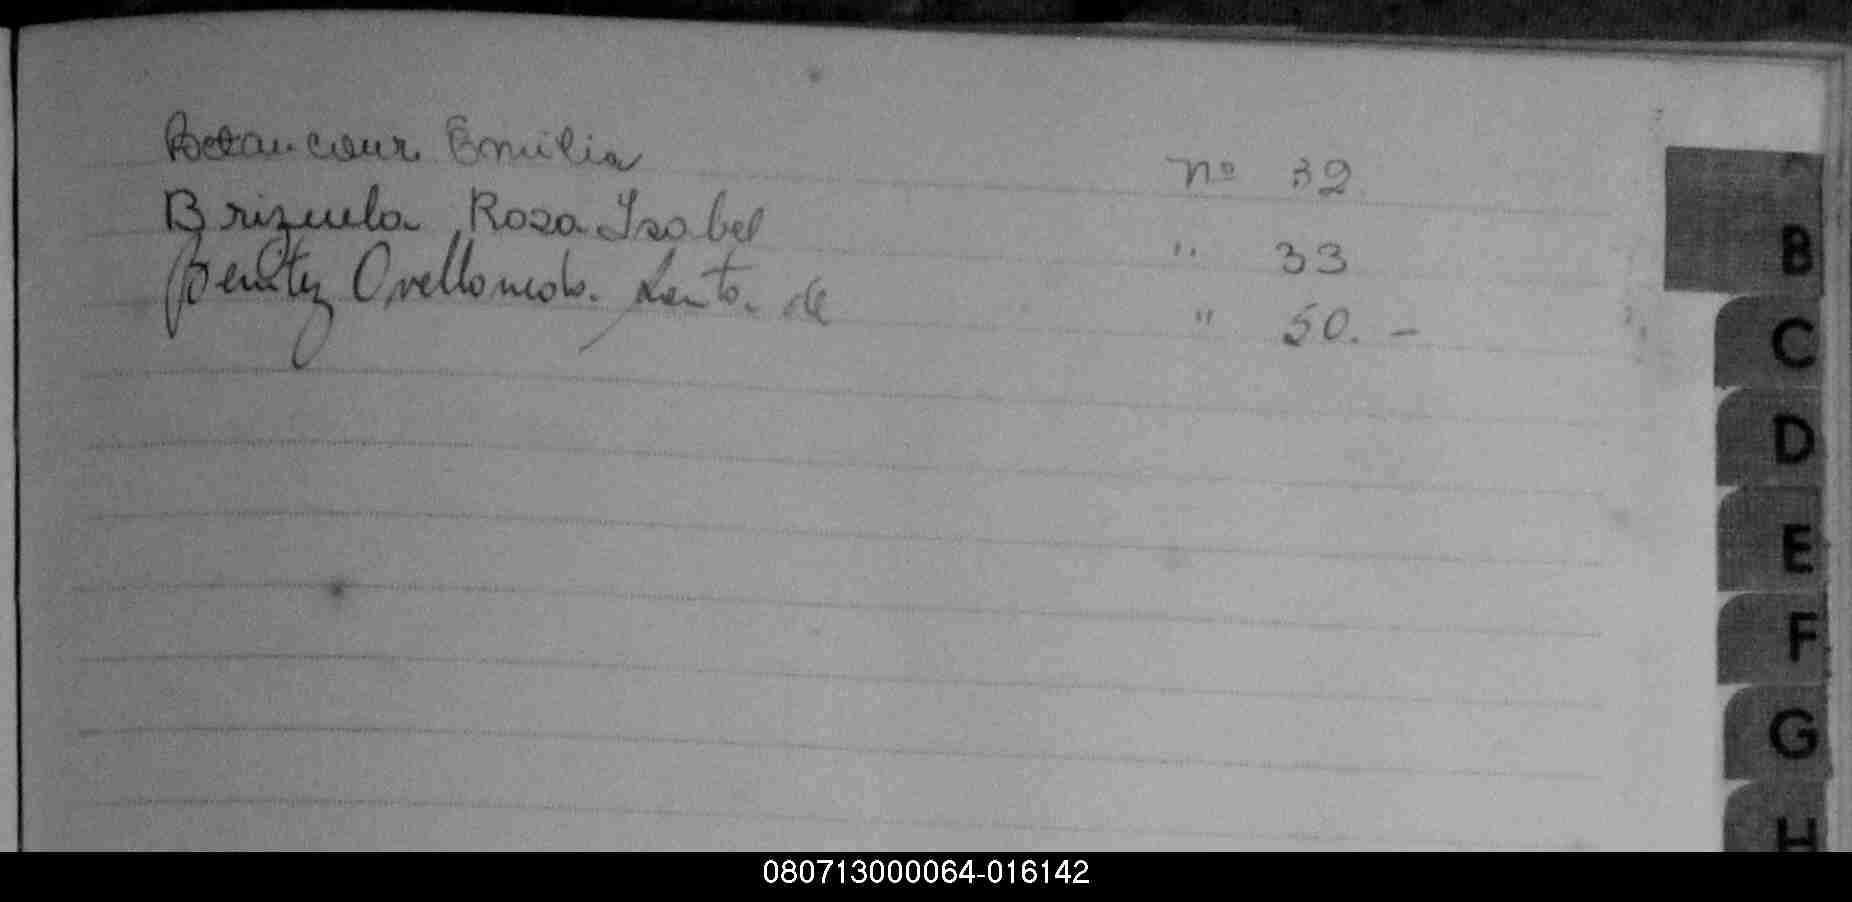 Betancour Emilia nº 32
Brizuela Rosa Isabel " 33
Benítez Santo. de " 50. -
B
C
D
E
F
G
H
080713000064-016142